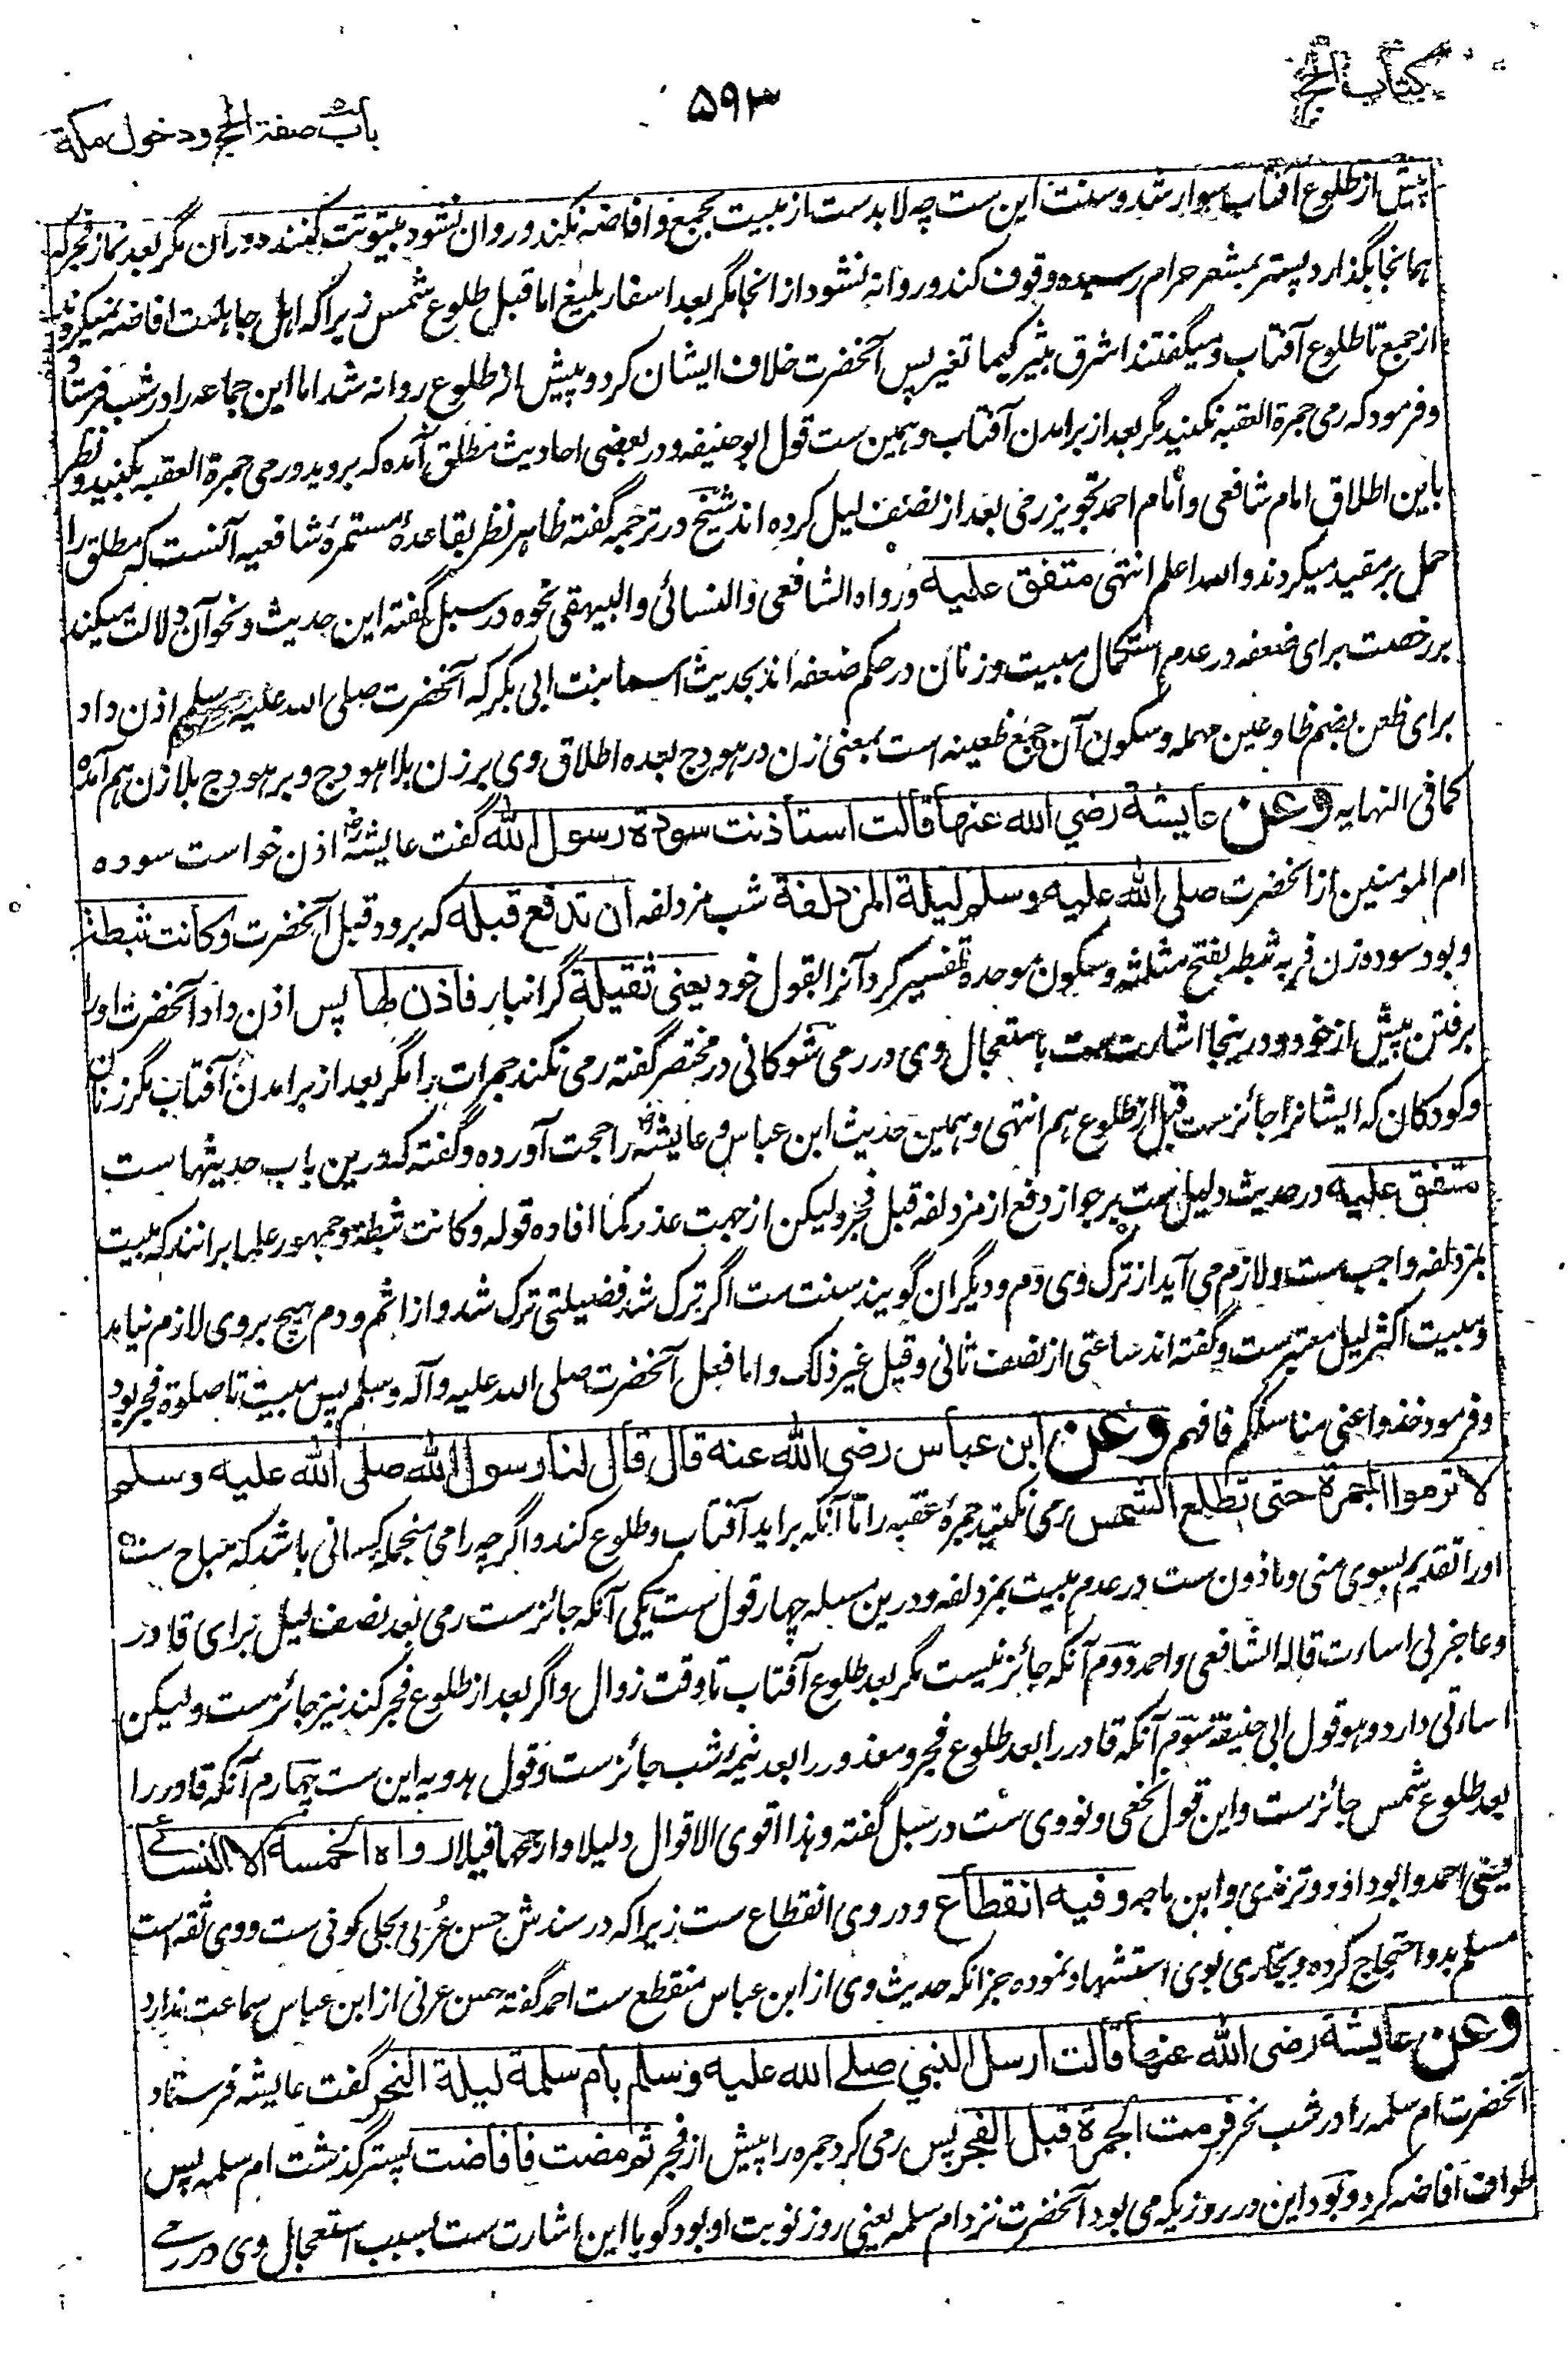 کتاب الحج
۵۹۳
باب صفة الحج ودخول مکة
پیش از طلوع آفتاب سوار شد و سنت این ست چه لابدست از مبیت بجمع و افاضه نکند و روان نشود بیتوتت کنند دوران مگر بعد نماز فجر که
همانجا بگذارد پستر بمشعر حرام رسیده وقوف کند و روانه نشود از انجا مگر بعد اسفار بلیغ اما قبل طلوع شمس زیرا که اهل جاهلیت افاضه نمیکردند
از جمع تا طلوع آفتاب و میگفتند اشرق ثبیر کیما نغیر پس آنحضرت خلاف ایشان کرد و پیش از طلوع روانه شد اما این جماعه را در شب فرستاد
و فرمود که رمی جمرة العقبه نکنید مگر بعد از برامدن آفتاب و همین ست قول ابوحنیفه و در بعضی احادیث مطلق آمده که بروید و رمی جمرة العقبه بکنید و نظر
باین اطلاق امام شافعی و امام احمد تجویز رمی بعد از نصف لیل کرده اند شیخ در ترجمه گفته ظاهر نظر بقاعدهٔ مستمرهٔ شافعیه آنست که مطلق را
حمل بر مقید میکردند والله اعلم انتهی متفق علیه ورواه الشافعی والنسائی والبیهقی نحوه در سبل گفته این حدیث و نحو آن دلالت میکند
بر رخصت برای ضعفه در عدم استکمال مبیت و زنان در حکم ضعفه اند بحدیث اسما بنت ابی بکر که آنحضرت صلی الله علیه وسلم اذن داد
برای ظعن بضم ظا وعین مهمله و سکون آن جمع ظعینه است بمعنی زن در هودج بعده اطلاق وی بر زن بلا هودج و بر هودج بلا زن هم آمده
کما فی النهایه وعن عایشة رضی الله عنها قالت استأذنت سودة رسول الله گفت عایشه اذن خواست سوده
ام المومنین از آنحضرت صلی الله علیه وسلم لیلة المزدلفة شب مزدلفه ان تدفع قبله که برود قبل آنحضرت وکانت ثبطة
و بود سوده زن فربه ثبطه بفتح مثلثه و سکون موحده تفسیر کرد آنرا بقول خود یعنی ثقیلة گرانبار فاذن لها پس اذن داد آنحضرت اورا
برفتن پیش از خود و درینجا اشارت ست باستعجال وی در رمی شوکانی در مختصر گفته رمی نکند جمرات را مگر بعد از برامدن آفتاب مگر زنان
و کودکان که ایشانرا جائزست قبل از طلوع هم انتهی و همین حدیث ابن عباس و عایشه را حجت آورده و گفته که درین باب حدیثهاست
متفق علیه در حدیث دلیل ست بر جواز دفع از مزدلفه قبل فجر ولیکن از جهت عذر کما افاده قوله وکانت ثبطة و جمهور علما برانند که مبیت
بمزدلفه واجب ست و لازم می آید از ترک وی دم و دیگران گویند سنت ست اگر ترک شد فضیلتی ترک شد و از اثم و دم هیچ بر وی لازم نیاید
و مبیت اکثر لیل معتبرست و گفته اند ساعتی از نصف ثانی وقیل غیر ذلک و اما فعل آنحضرت صلی الله علیه وآله وسلم پس مبیت تا صلوة فجر بود
و فرمود خذوا عنی مناسککم فافهم وعن ابن عباس رضی الله عنه قال قال لنا رسول الله صلی الله علیه وسلم
لا ترموا الجمرة حتی تطلع الشمس رمی نکنید جمرهٔ عقبه را تا آنکه براید آفتاب و طلوع کند واگرچه رامی منجمله کسانی باشد که مباح ست
اورا تقدیم بسوی منی و ماذون ست در عدم مبیت بمزدلفه و درین مسئله چهار قول ست یکی آنکه جائزست رمی بعد نصف لیل برای قادر
و عاجز بی اساءت قاله الشافعی و احمد دوم آنکه جائز نیست مگر بعد طلوع آفتاب تا وقت زوال و اگر بعد از طلوع فجر کند نیز جائزست ولیکن
اسائتی دارد و هو قول ابی حنیفة سوم آنکه قادر را بعد طلوع فجر و معذور را بعد نیمهٔ شب جائزست و قول هدویه این ست چهارم آنکه قادر را
بعد طلوع شمس جائزست و این قول نخعی و نووی ست در سبل گفته وهذا اقوی الاقوال دلیلا وارجحها قیلا رواه الخمسة الا النسائی
یعنی احمد و ابوداؤد و ترمذی و ابن ماجه وفیه انقطاع و در وی انقطاع ست زیرا که در سندش حسن عُرنی بجلی کوفی ست و وی ثقه است
مسلم بدو احتجاج کرده و بخاری بوی استشهاد نموده جز آنکه حدیث وی از ابن عباس منقطع ست احمد گفته حسن عرنی از ابن عباس سماعت ندارد
وعن عایشة رضی الله عنها قالت ارسل النبی صلی الله علیه وسلم بام سلمة لیلة النحر گفت عایشه فرستاد
آنحضرت ام سلمه را در شب نحر فرمت الجمرة قبل الفجر پس رمی کرد جمره را پیش از فجر ثم مضت فافاضت پستر گذشت ام سلمه پس
طواف افاضه کرد و بود این در روزیکه می بود آنحضرت نزد ام سلمه یعنی روز نوبت او بود گویا این اشارت ست بسبب استعجال وی در رمی